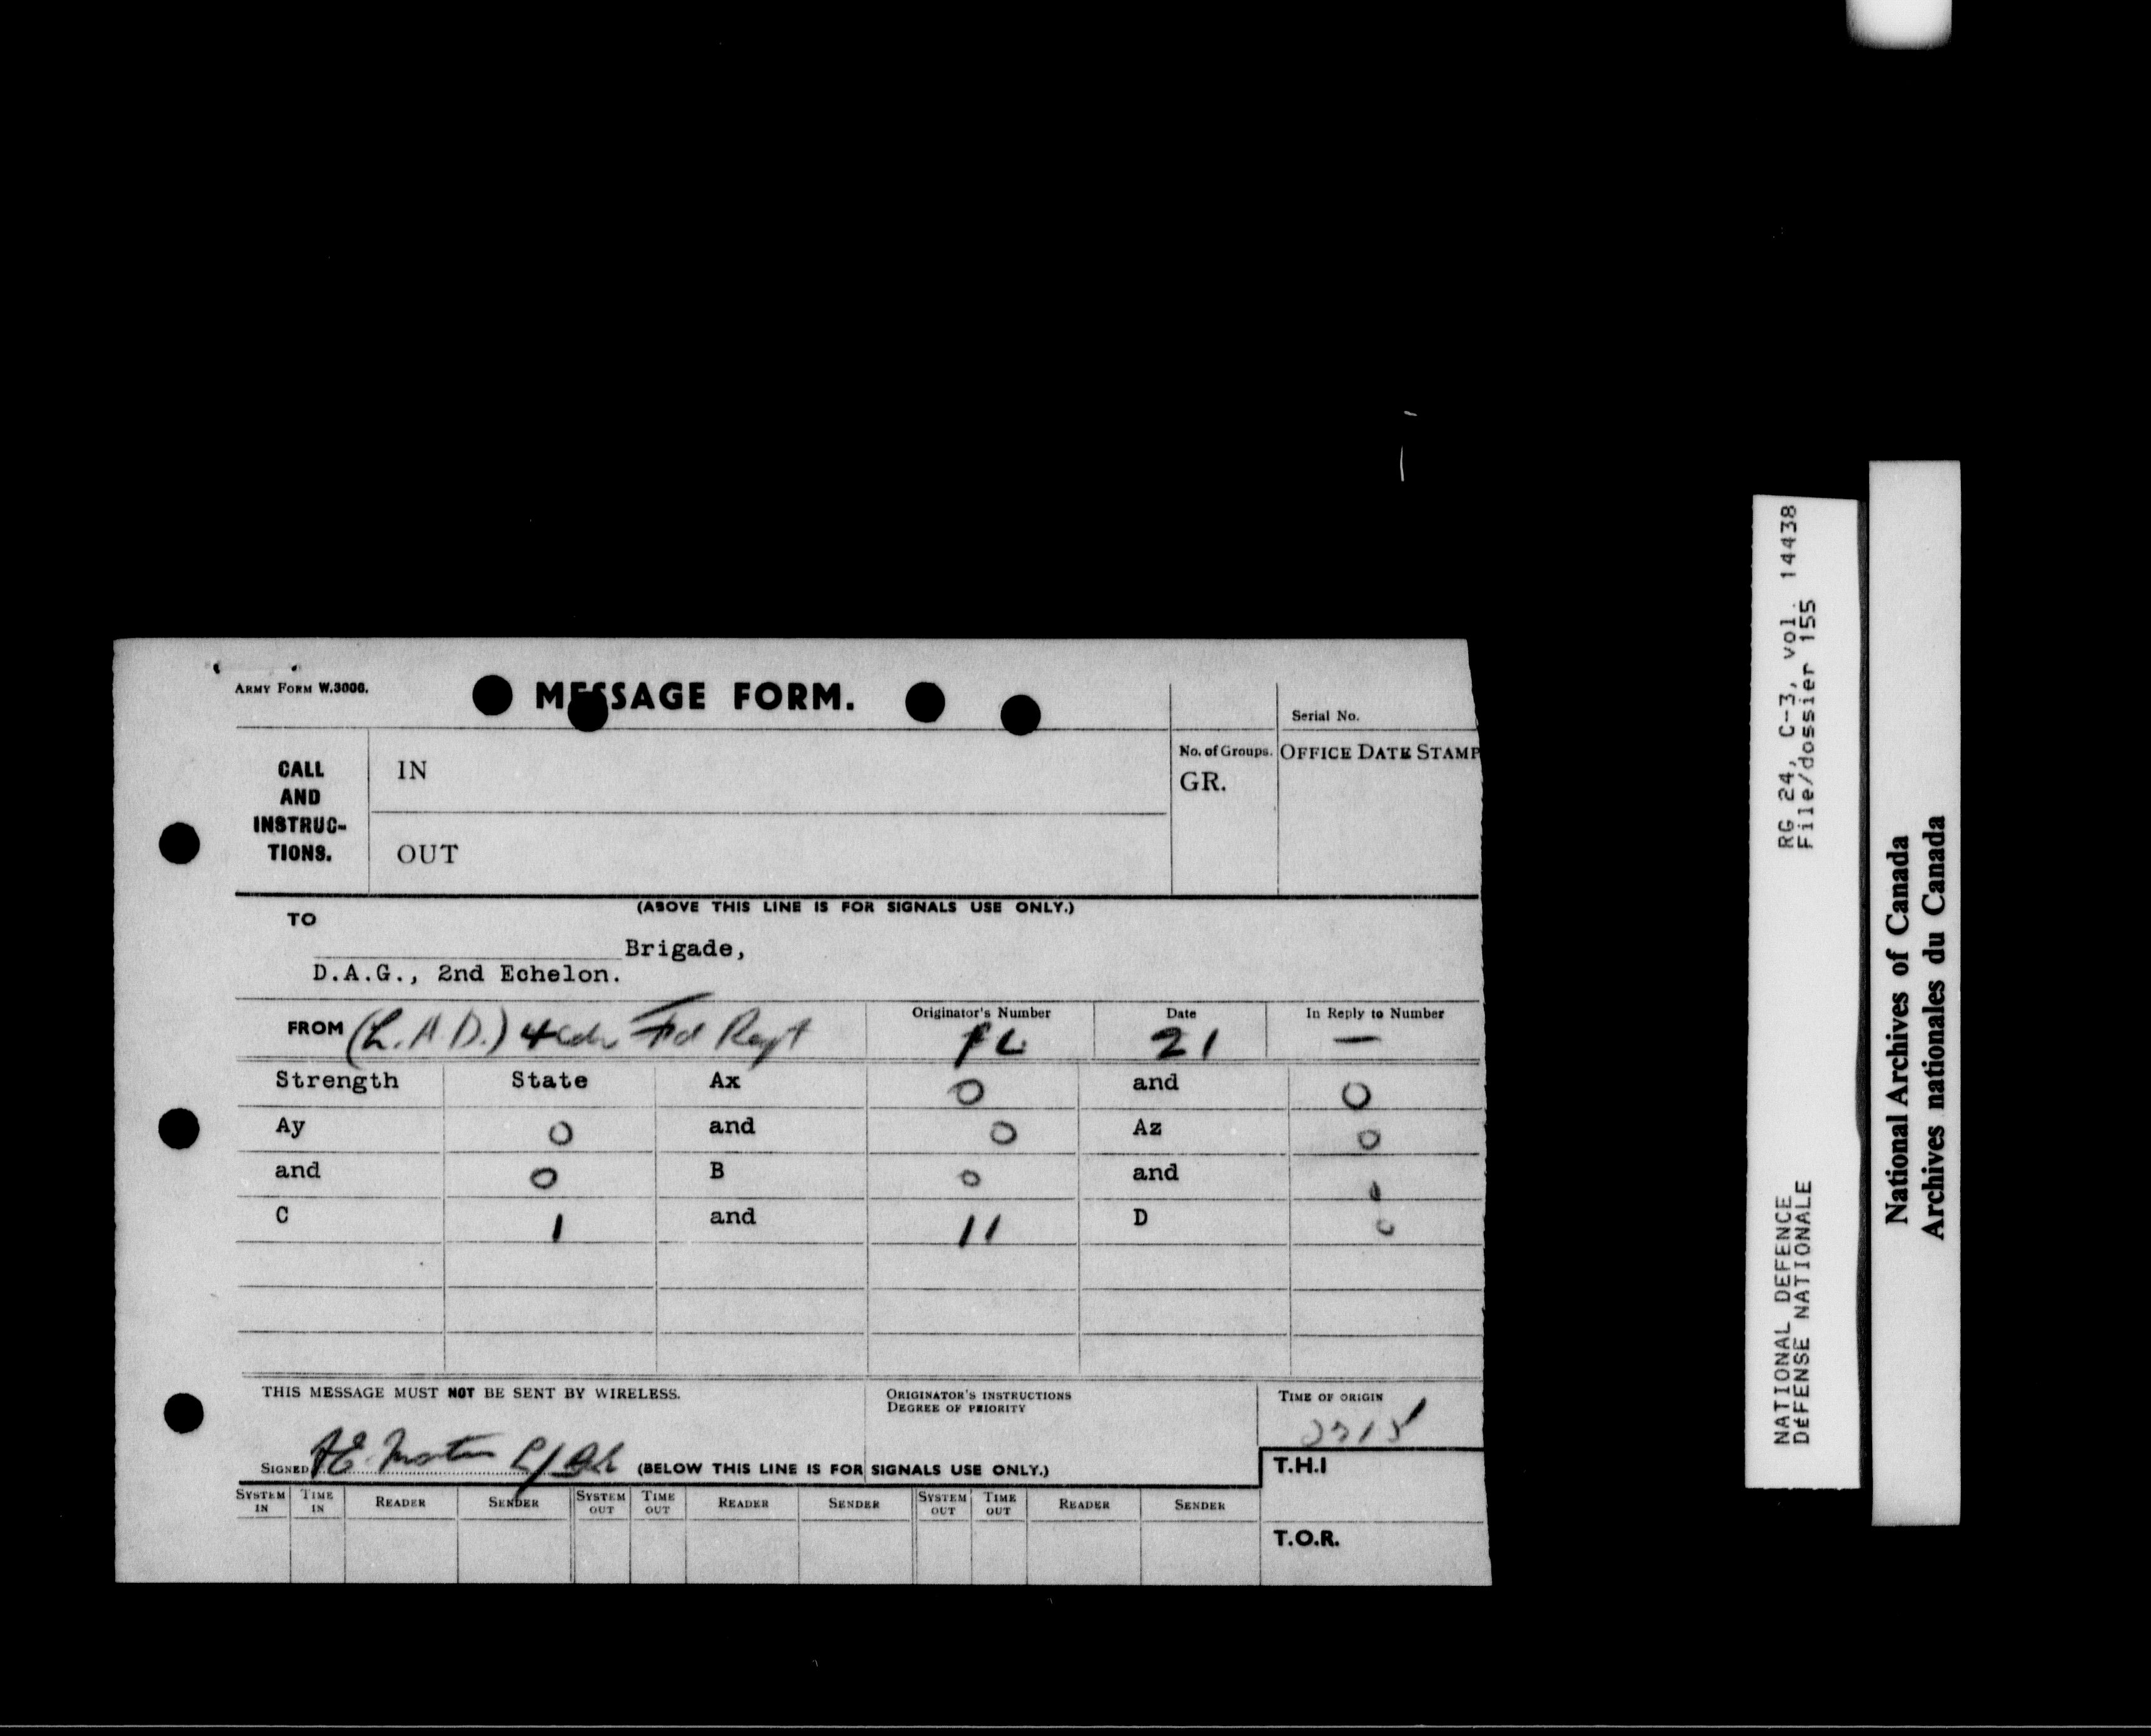 ARMY FORM W.3006.
MESSAGE FORM.
Serial No.
CALL
AND
INSTRUC-
TIONS.
IN
OUT
No. of Groups.
GR.
OFFICE DATE STAMP
(ABOVE THIS LINE IS FOR SIGNALS USE ONLY.)
TO
Brigade,
D.A.G., 2nd Echelon.
FROM (L.A.D.) 4 Cdn Fd Regt
Originator's Number
Date
21
In Reply to Number
—
Strength State Ax 0 and 0
Ay 0 and 0 Az 0
and 0 B 0 and
C 1 and 11 D 0
THIS MESSAGE MUST NOT BE SENT BY WIRELESS.
ORIGINATOR'S INSTRUCTIONS
DEGREE OF PRIORITY
TIME OF ORIGIN
SIGNED
(BELOW THIS LINE IS FOR SIGNALS USE ONLY.)
T.H.I
SYSTEM IN TIME IN READER SENDER SYSTEM OUT TIME OUT READER SENDER SYSTEM OUT TIME OUT READER SENDER
T.O.R.
RG 24, C-3, vol. 14438
File/dossier 155
NATIONAL DEFENCE
DÉFENSE NATIONALE
National Archives of Canada
Archives nationales du Canada